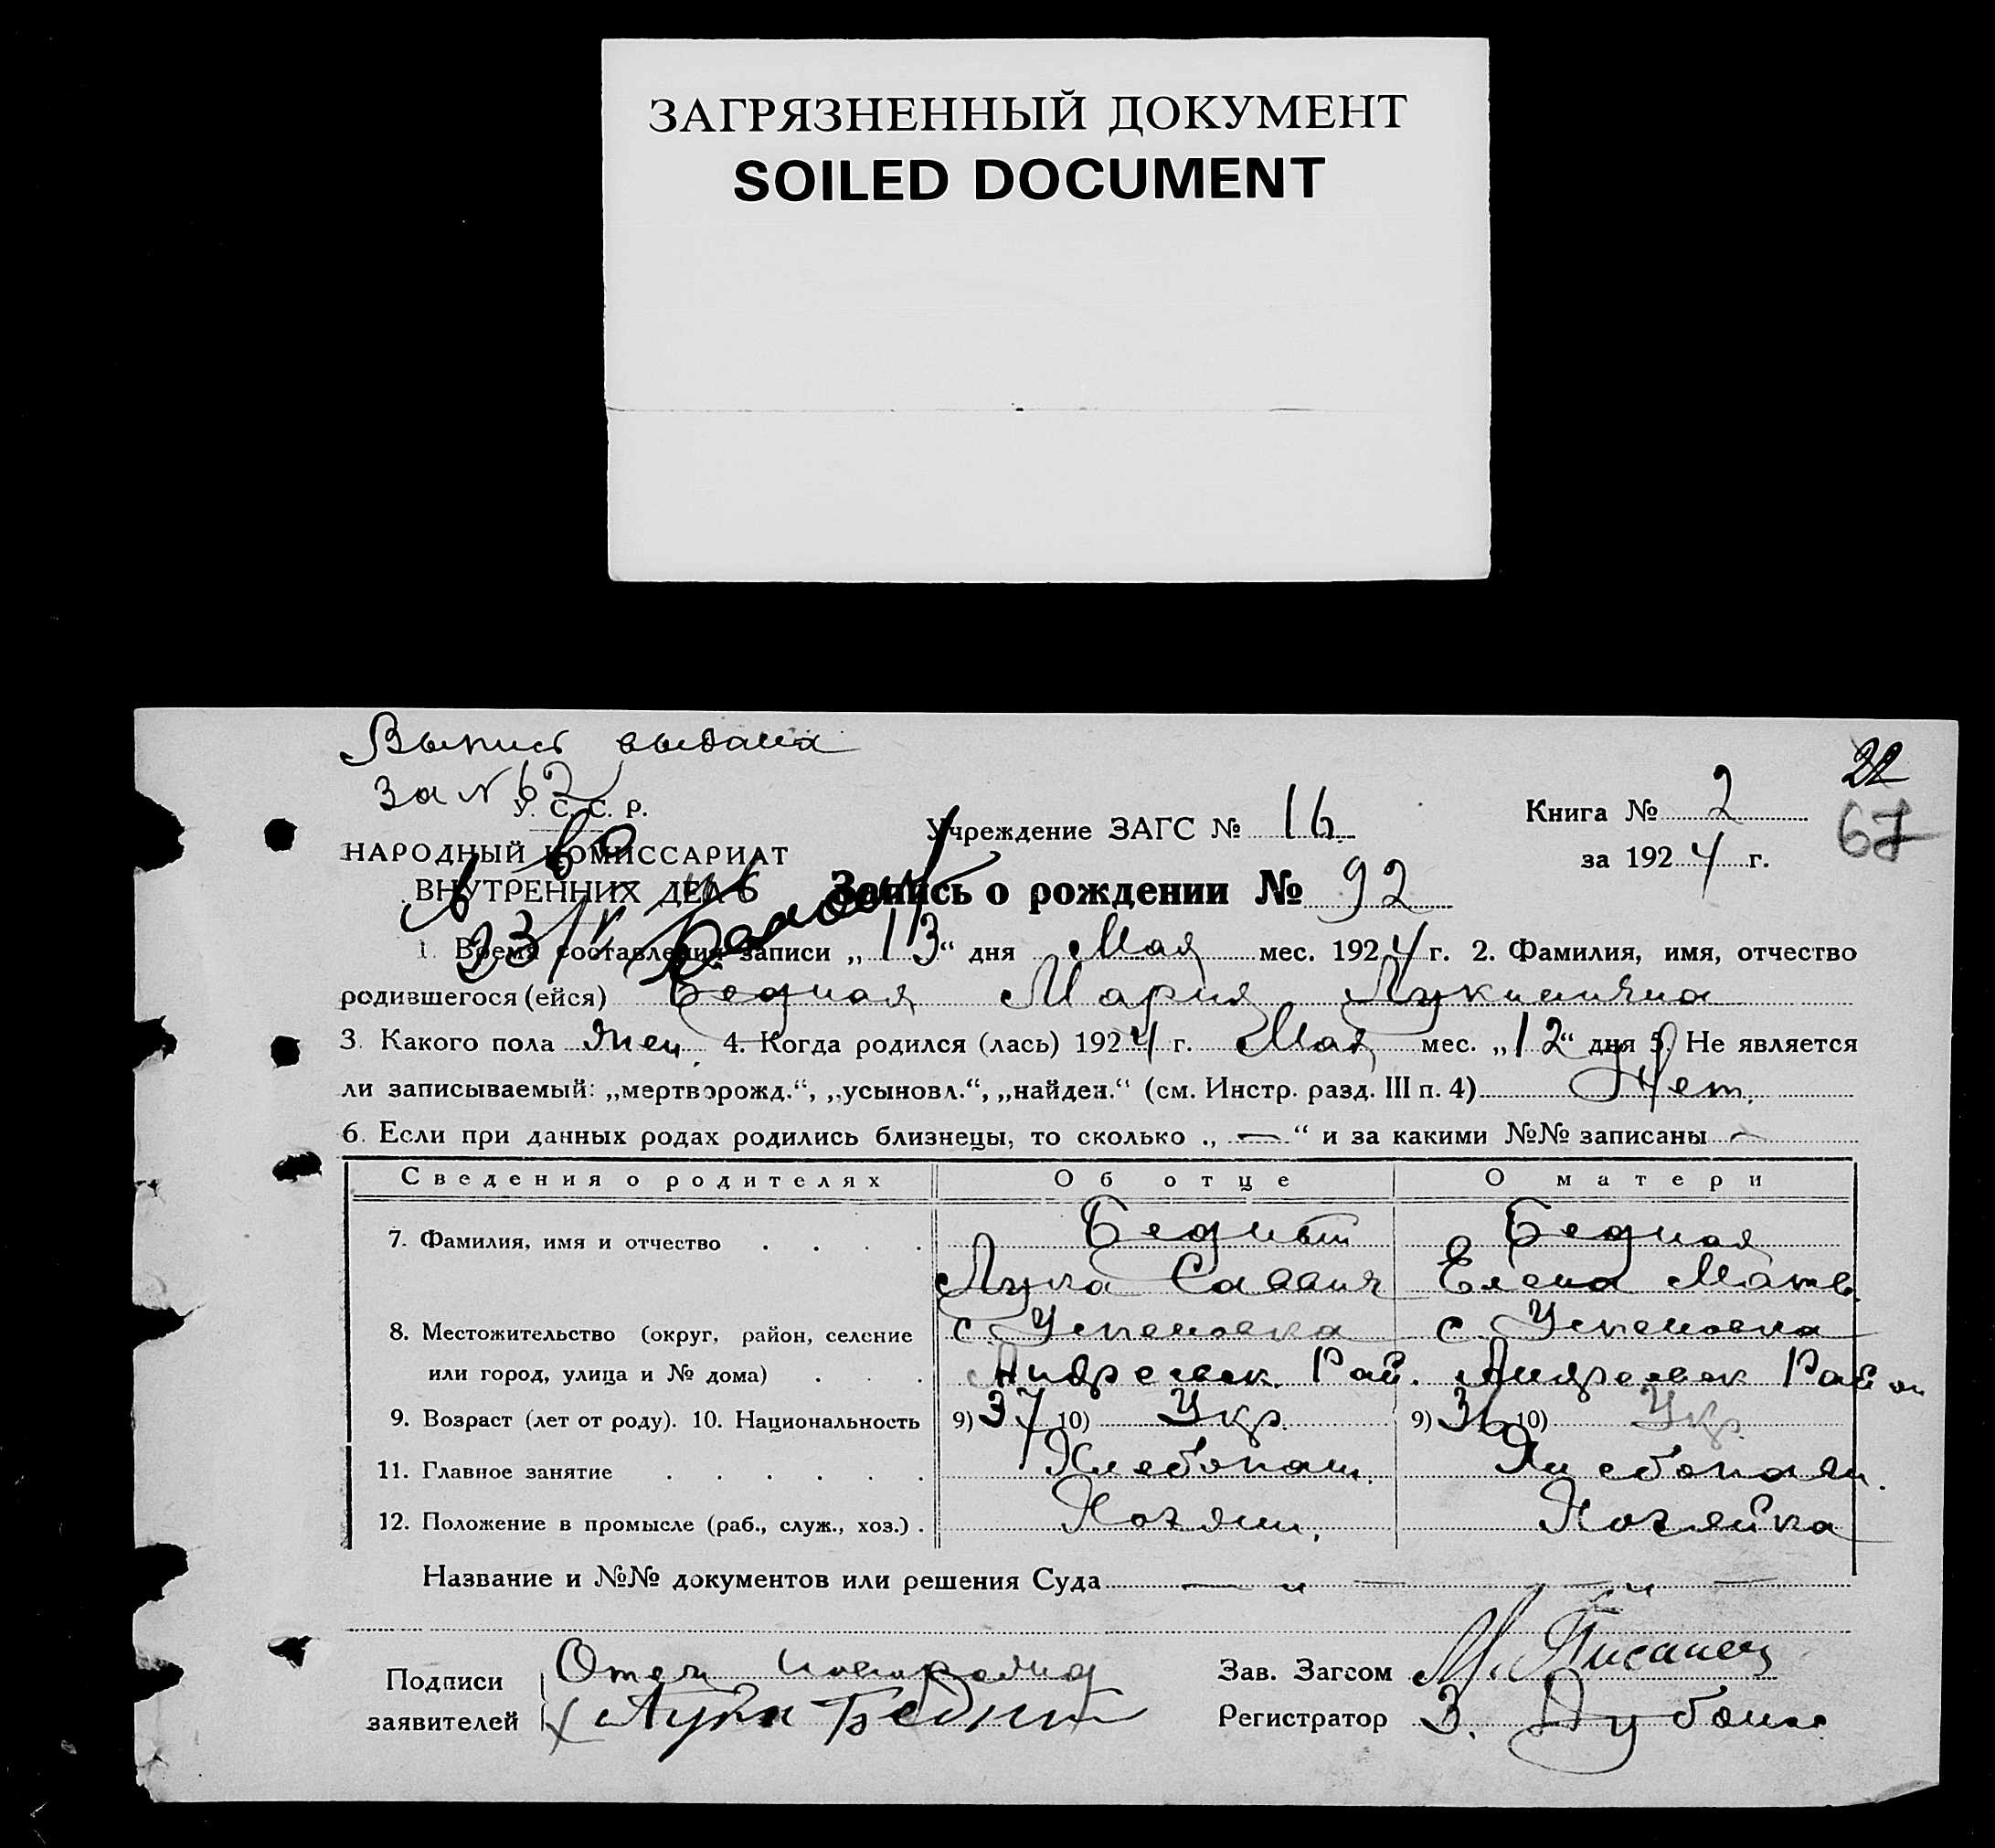 ЗАГРЯЗНЕННЫЙ ДОКУМЕНТ
SOILED DOCUMENT
Выпись выдана
за № 62
22
67
У. С. С. Р.
НАРОДНЫЙ КОМИССАРИАТ
ВНУТРЕННИХ ДЕЛ
Учреждение ЗАГС № 16
Книга № 2
за 1924 г.
Запись о рождении № 92
1. Время составления записи „13“ дня Мая мес. 1924 г. 2. Фамилия, имя, отчество
родившегося (ейся) Бедная Мария Лукинична
3. Какого пола жен. 4. Когда родился (лась) 1924 г. Мая мес. „12“ дня 5. Не является
ли записываемый: „мертворожд.“, „усыновл.“, „найден.“ (см. Инстр. разд. III п. 4) Нет.
6. Если при данных родах родились близнецы, то сколько „—“ и за какими №№ записаны —
Сведения о родителях Об отце О матери
7. Фамилия, имя и отчество . . . . Бедный Бедная
Лука Саввич Елена Матв.
8. Местожительство (округ, район, селение с. Успеновка с. Успеновка
или город, улица и № дома) . . . Андреевск. Рай. Андреевск Район
9. Возраст (лет от роду). 10. Национальность 9) 37 10) Укр. 9) 36 10) Укр.
11. Главное занятие . . . . . . Хлебопаш. Хлебопаш.
12. Положение в промысле (раб., служ., хоз.) . Хозяин. Хозяйка
Название и №№ документов или решения Суда — " — — " —
Подписи
заявителей
Отец
Лука Бедний
Зав. Загсом М. Писанец
Регистратор З.